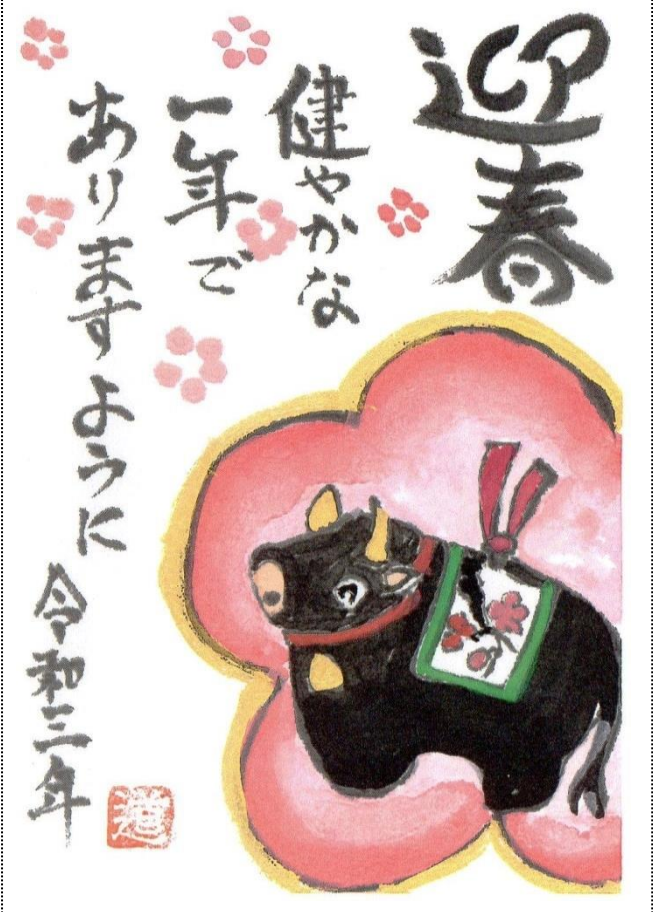 迎春
健やかな
一年で
ありますように
令和三年
道